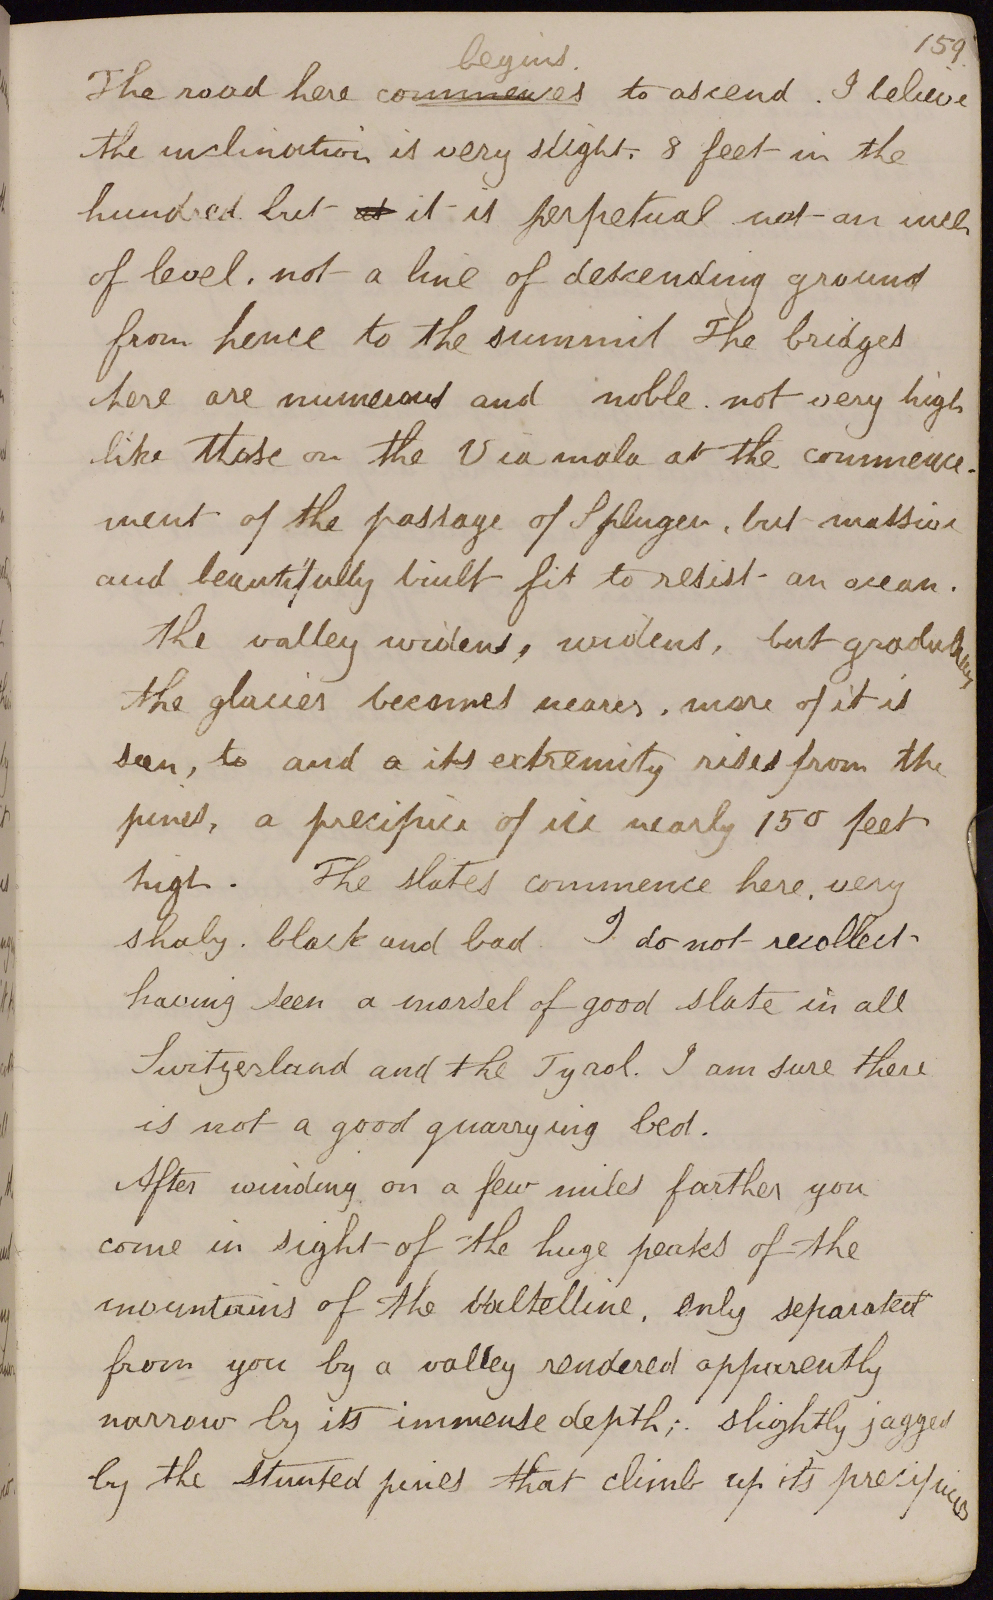 159.
begins.
The road here commences to ascend. I believe
the inclination is very slight. 8 feet in the
hundred but at it is perpetual not an inch
of level. not a line of descending ground
from hence to the summit The bridges
here are numerous and noble. not very high
like those on the Via mala at the commence-
ment of the passage of Splugen, but massive
and beautifully built fit to resist an ocean.
The valley widens, widens, but gradually
the glacier becomes nearer, more of it is
seen, to and a its extremity rises from the
pines, a precipice of ice nearly 150 feet
high. The slates commence here, very
shaly. black and bad I do not recollect
having seen a morsel of good slate in all
Switzerland and the Tyrol. I am sure there
is not a good quarrying bed.
After winding on a few miles farther you
come in sight of the huge peaks of the
mountains of the Valtelline, only separated
from you by a valley rendered apparently
narrow by its immense depth; slightly jagged
by the stunted pines that climb up its precipices